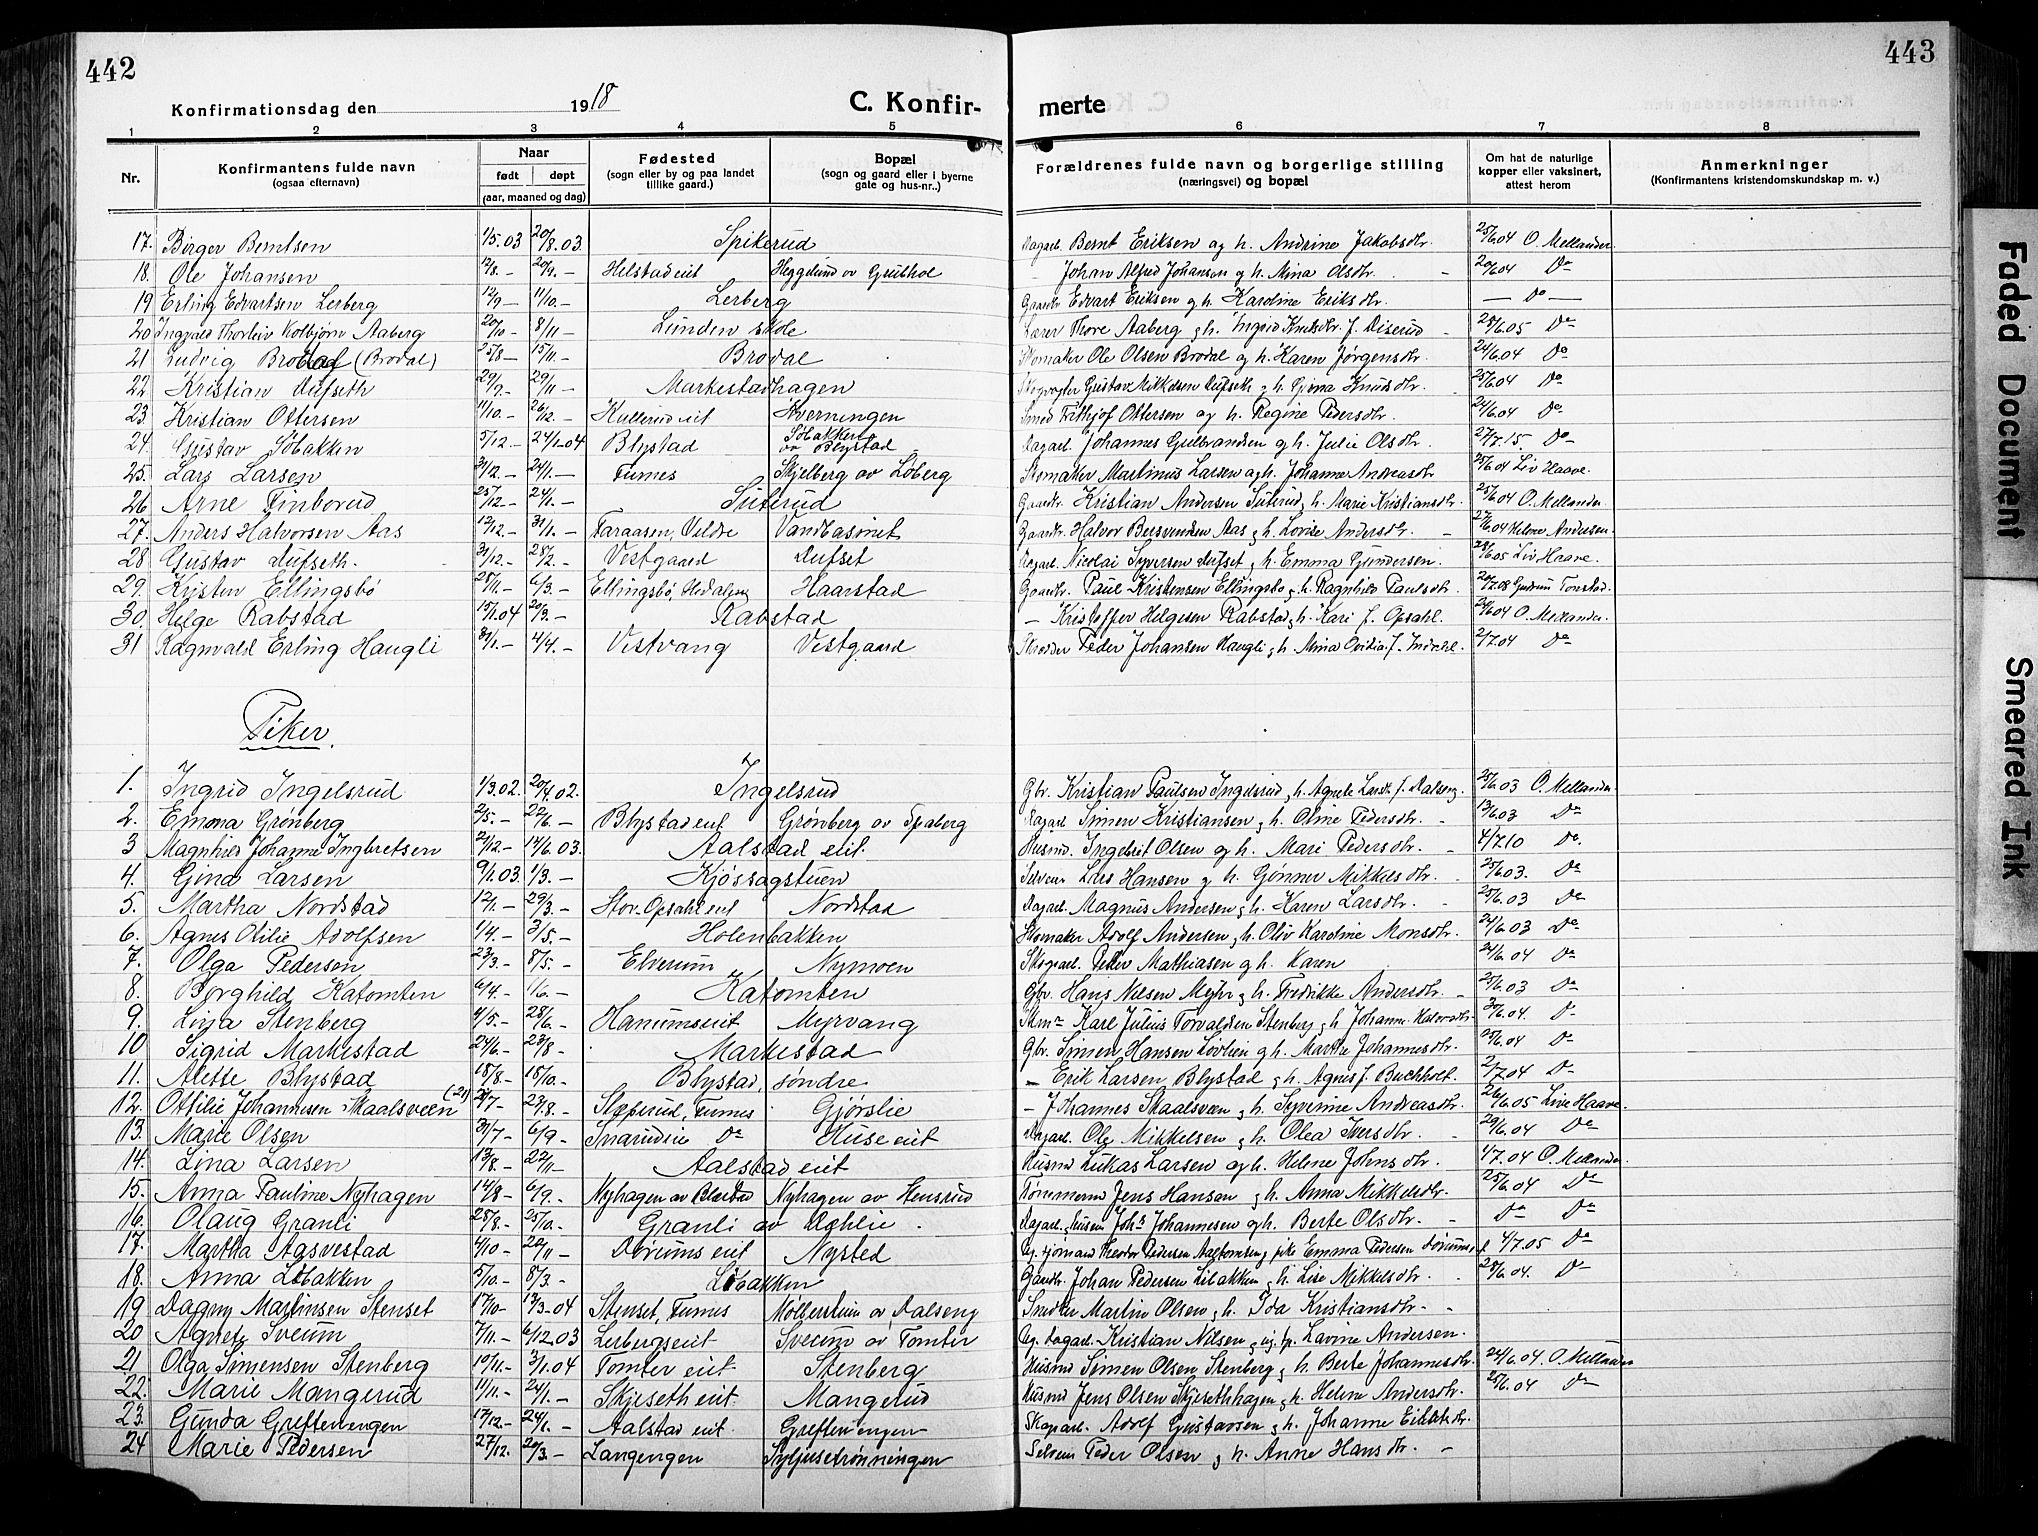 442
443
Konfirmationsdag den 1918
C. Konfir-
merte
1 2 3 4 5 6 7 8
Nr.
Konfirmantens fulde navn (ogsaa efternavn)
Naar
født døpt
(aar, maaned og dag)
Fødested (sogn eller by og paa landet tillike gaard.)
Bopæl (sogn og gaard eller i byerne gate og hus-nr..)
Forældrenes fulde navn og borgerlige stilling (næringsvei) og bopæl
Om hat de naturlige kopper eller vaksinert, attest herom
Anmerkninger (Konfirmantens kristendomskundskap m. v.)
17. Birger Berntsen 1/5.03 20/8.03 Spikerud Dagarb. Bernt Eriksen og h. Andrine Jakobsdtr. 25/6.04 O. Mellander
18. Ole Johansen 12/8.– 20/9.– Helstad eit Heggelund av Grubhol – Johan Alfred Johansen og h. Mina Olsdtr. 20/6.04 Do
19 Erling Edvartsen Lerberg 12/9– 11/10.– Lerberg Gaardbr. Edvart Eriksen og h. Karoline Eriksdtr. — Do —
20 Ingvald Thorleiv Kolbjørn Aaberg 20/10– 8/11– Lunden skole Lærer Thore Aaberg og h. Ingrid Knutsdtr. f. Diserud 28/6.05 Do
21 Ludvig (Brodal) 25/8– 15/11.– Brodal Skomaker Ole Olsen Brodal og h. Karen Jørgensdtr. 24/6.04 Do
22. Kristian Dufseth 29/9.– 29/11– Markestadhagen Skogvogter Gustav Mikkelsen Dufseth og h. Gina Knutsdtr. 25/6.04 Do
23. Kristian Ottersen 11/10.– 26/12.– Kullerud eit Kverningen Smed Frithjof Ottersen og h. Regine Pedersdtr. 24/6.04 Do
24. Gustav Løbakken 5/12.– 24/1.04 Blystad Løbakken av Blystad Dagarb. Johannes Gulbrandsen og h. Julie Olsdtr. 27/7.15. Do–
25. Lars Larsen 31/12.– 24/1.– Furnes Skjelberg av Løberg Skomaker Martinus Larsen og h. Johanne Andreasdtr. 25/6.04 Liv Haave.
26 Arne Finborud 25/12.– 24/1.– Suterud Gaardbr. Kristian Andersen Suterud, h. Marie Kristiansdtr. 25/6.04 O. Mellander
27. Anders Halvorsen Aas 12/12.– 31/1.– Faraasen, Veldre Vandbasinet Gaardbr. Halvor Bersvendsen Aas og h. Lovise Andersdtr. 27/6.04 Helene Andersen.
28 Gustav Dufseth. 31/12.– 28/2.– Vestgaard Dufset Dagarb. Nicolai Syversen Dufset og h. Emma Gundersen. 28/6.05 Liv Haave.
29. Kristen Ellingsbø 25/11.– 6/3.– Ellingsbø, Hedalen Haarstad Gaardbr. Paul Kristensen Ellingsbø og h. Ragnhild Paulsdtr. 20/7.08 Gudrun
30. Helge Rabstad 15/1.04 20/3.– Rabstad – Kristoffer Helgesen Rabstad og h. Kari f. Opsahl. 24/6.04 O. Mellander.
31 Ragnvald Erling Haugli 31/1.– 4/4.– Vestvang Vestgaard Skrædder Peder Johansen Haugli og h. Mina Ovidia f. 2/7.04 Do
Piker.
1. Ingrid Ingelsrud 1/3.02. 20/4.02. Ingelsrud Gbr. Kristian Paulsen Ingelsrud og h. Agnete Larsdtr. f. Dalseng. 25/6.03 O. Mellander
2. Emma Grønberg 2/5.– 22/6– Blystad eit Grønberg av Spaberg Dagarb. Simen Kristiansen og h. Oline Pedersdtr. 13/6.03 Do
3 Magnhild Johanne Ingbretsen 24/12.– 14/6.03. Aalstad eit. Husmd. Ingebret Olsen og h. Mari Pedersdtr. 4/7.10 Do.
4. Gina Larsen 9/1.03. 1/3.– Kjøssagsteien Selveier Lars Hansen og h. Gønner Mikkelsdtr. 25/6.03. Do
5. Martha Nordstad 12/1.– 29/3.– Stor-Opsahl eit Nordstad Dagarb. Magnus Andersen og h. Karen Larsdtr. 25/6.03 Do
6. Agnes Otilie Adolfsen 1/4.– 3/5.– Holenbakken Skomaker Adolf Andersen og h. Oliv Karoline Monsdtr. 24/6.03 Do
7. Olga Pedersen 23/3.– 8/5.– Elverum Nymoen Skogsarb. Peder Mathiasen og h. Karen 24/6.04 Do
8. Borghild Katomten 6/4.– 1/6.– Katomten Gbr. Hans Nilsen Myhr og h. Fredrikke Andersdtr. 25/6.03 Do
9. Lina Stenberg 4/5.– 28/6– Hanums eit Myrvang Skm. Karl Julius Torvaldsen Stenberg og h. Johanne Halvorsdtr 30/6.04. D–
10. Sigrid Markestad 24/6– 23/8– Markestad Gbr. Simen Hansen Løvlien og h. Marthe Johannesdtr. 25/6.04 D–
11. Alette Blystad 18/8– 18/10.– Blystad, søndre – Erik Larsen Blystad og h. Agnes f. Buchholt. 2/7.04 D–
12. Ottilie Johannesen Skaalsveen 21/7– 23/8.– Slæperud, Furnes Gjørslie – Johannes Skaalsveen og h. Syverine Andreasdtr. 26/6.05 Live Haave.
13. Marie Olsen 31/7– 6/9– Snarudlie Do Huse eit Dagarb. Ole Mikkelsen og h. Olea Iversdtr. 29/6.04 Do
14. Lina Larsen 13/8.– 22/11– Aalstad eit Husmd Lukas Larsen og h. Helene Johnsdtr. 4/7.04 O. Mellander
15. Anna Pauline Nyhagen 14/8– 6/9.– Nyhagen av Blæstad Nyhagen av Stensrud Tømmermd Jens Hansen og h. Anna Mikkelsdtr. 25/6.04 Do
16. Olaug Granli 28/8.– 25/10.– Granli av Dæhlie. Dagarb. Johs Johannesen og h. Berte Olsdtr. Do Do
17. Martha Aasvestad 4/10– 20/11– Dørums eit Nysted Ug. Theodor Pedersen pike Emma Pedersen Dørums eit 4/7.05 Do
18. Anna Løbakken 5/10.– 8/3.– Løbakken Gaardbr. Johan Pedersen Løbakken og h. Lise Mikkelsdtr. 28/6.04. D–
19 Dagny Martinsen Stenset 17/10– 13/3–04 Stenset, Furnes Møllerstuen av Dalseng Snedker Martin Olsen og h. Ida Kristiansdtr.
20 Agnete Sveum 7/11.– 6/12.03 Lerbergseit Sveum av Tomter Ug. Dagarb. Kristian Nilsen og ug. p. Lavine Andersen.
21. Olga Simensen Stenberg 10/11.– 3/1.04 Tomter eit Stenberg Husmd Simen Olsen Stenberg og h. Berte Johannesdtr. 24/6.04. O. Mellander
22. Marie Mangerud 11/11.– 24/1.– Skjeseth eit. Mangerud Husmd Jens Olsen Skjesethhagen og h. Helene Andersdtr. 25/6.04 Do
23. Gunda Greftenengen 17/12.– 24/1.– Aalstad eit. Greftenengen Skogarb. Adolf Gustavsen og h. Johanne
24 Marie Pedersen 27/12. 20/3.– Langengen Selveier Peder Olsen og h. Anne Hansdtr.
Faded Document
Smeared Ink